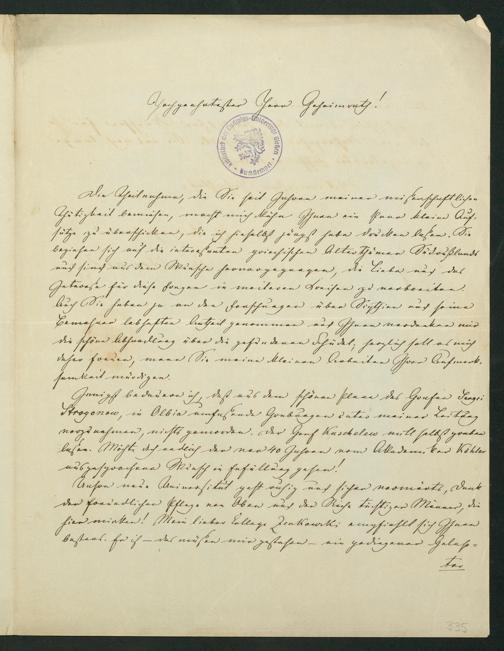 Hochgeehrtester Herr Geheimrath!
Die Theilnahme, die Sie seit Jahren meiner wissenschaftlichen
Thätigkeit bewiesen, macht mich kühn Ihnen ein Paar kleine Auf-
sätze zu überschicken, die ich hieselbst jüngst habe drucken lassen. Sie
beziehen sich auf die interessanten griechischen Alterthümer Südrußlands
und sind aus dem Wunsche hervorgegangen, die Liebe und das
Interesse für diese Fragen in weiteren Kreisen zu verbreiten.
Auch Sie haben ja an den Forschungen über Scythien und seine
Bewohner lebhaften Antheil genommen und Ihnen verdanken wir
die schöne Abhandlung über die gefundenen Schädel; herzlich soll es mich
daher freuen, wenn Sie meine kleinen Arbeiten Ihrer Aufmerk-
samkeit würdigen.
Innigst bedaure ich, daß aus dem schönen Plane des Grafen Sergei
Stroganow, in Olbia umfassende Grabungen unter meiner Leitung
vorzunehmen, nichts geworden. Der Graf Kuschelew will selbst graben
lassen. Möchte doch endlich der vor 40 Jahren vom Akademiker Köhler
ausgesprochene Wunsch in Erfüllung gehen!
Unsere neue Universität geht ruhig und sicher vorwärts, Dank
der freundlichen Pflege von Oben und der Reihe tüchtiger Männer, die
hier wirken! Mein lieber College Zenkowski empfiehlt sich Ihnen
bestens. Er ist – das müssen wir gestehen – ein gediegener Gelehr-
ter
335